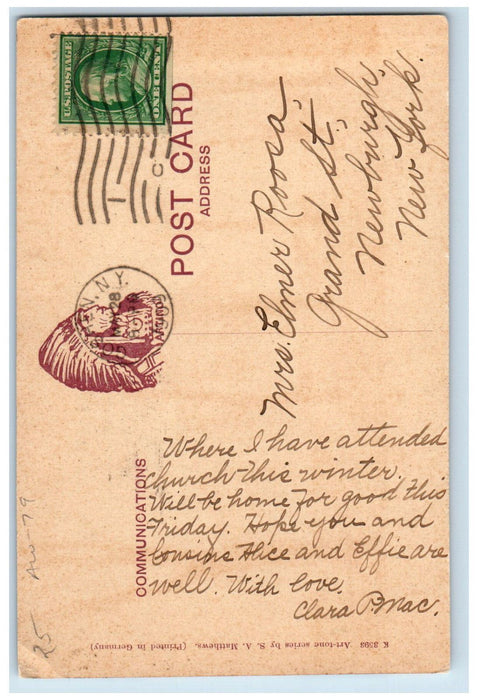 POST CARD
ADDRESS
U.S. POSTAGE
ONE CENT
N.Y.
28
Mrs. Elmer Roosa.
Grand St.
Newburgh,
New York.
COMMUNICATIONS
Where I have attended
Church this winter.
Will be home for good this
Friday. Hope you and
Cousins Alice and Effie are
well. With love.
Clara
K 3593 Art-tone series by S. A. Matthews. (Printed in Germany)
25-